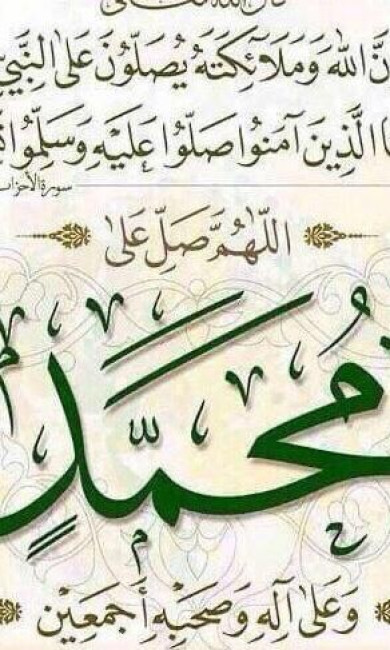 قال الله تعالى
نَّ اللهَ وَمَلَائِكَتَهُ يُصَلُّونَ عَلَى النَّبِيِّ
ا الَّذِينَ آمَنُوا صَلُّوا عَلَيْهِ وَسَلِّمُوا
سورة الأحزاب
اللّٰهُمَّ صَلِّ عَلَى
مُحَمَّدٍ
وَعَلَى آلِهِ وَصَحْبِهِ أَجْمَعِين